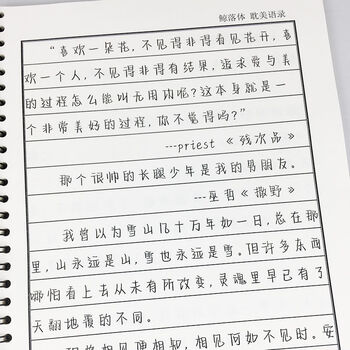 鲸落体 耽美语录
“喜欢一朵花，不见得非得看见花开，喜
欢一个人，不见得非得有结果，追求爱与美
的过程怎么能叫无用功呢？这本身就是一
个非常美好的过程，你不觉得吗？”
---priest 《残次品》
那个很帅的长腿少年是我的男朋友。
---巫哲《撒野》
我曾以为雪山几十万年如一日，总在那
里，山永远是山，雪也永远是雪。但许多东西
哪怕看上去从未有所改变，灵魂里早已有了
天翻地覆的不同。
相见便相知，相见何如不见时。安